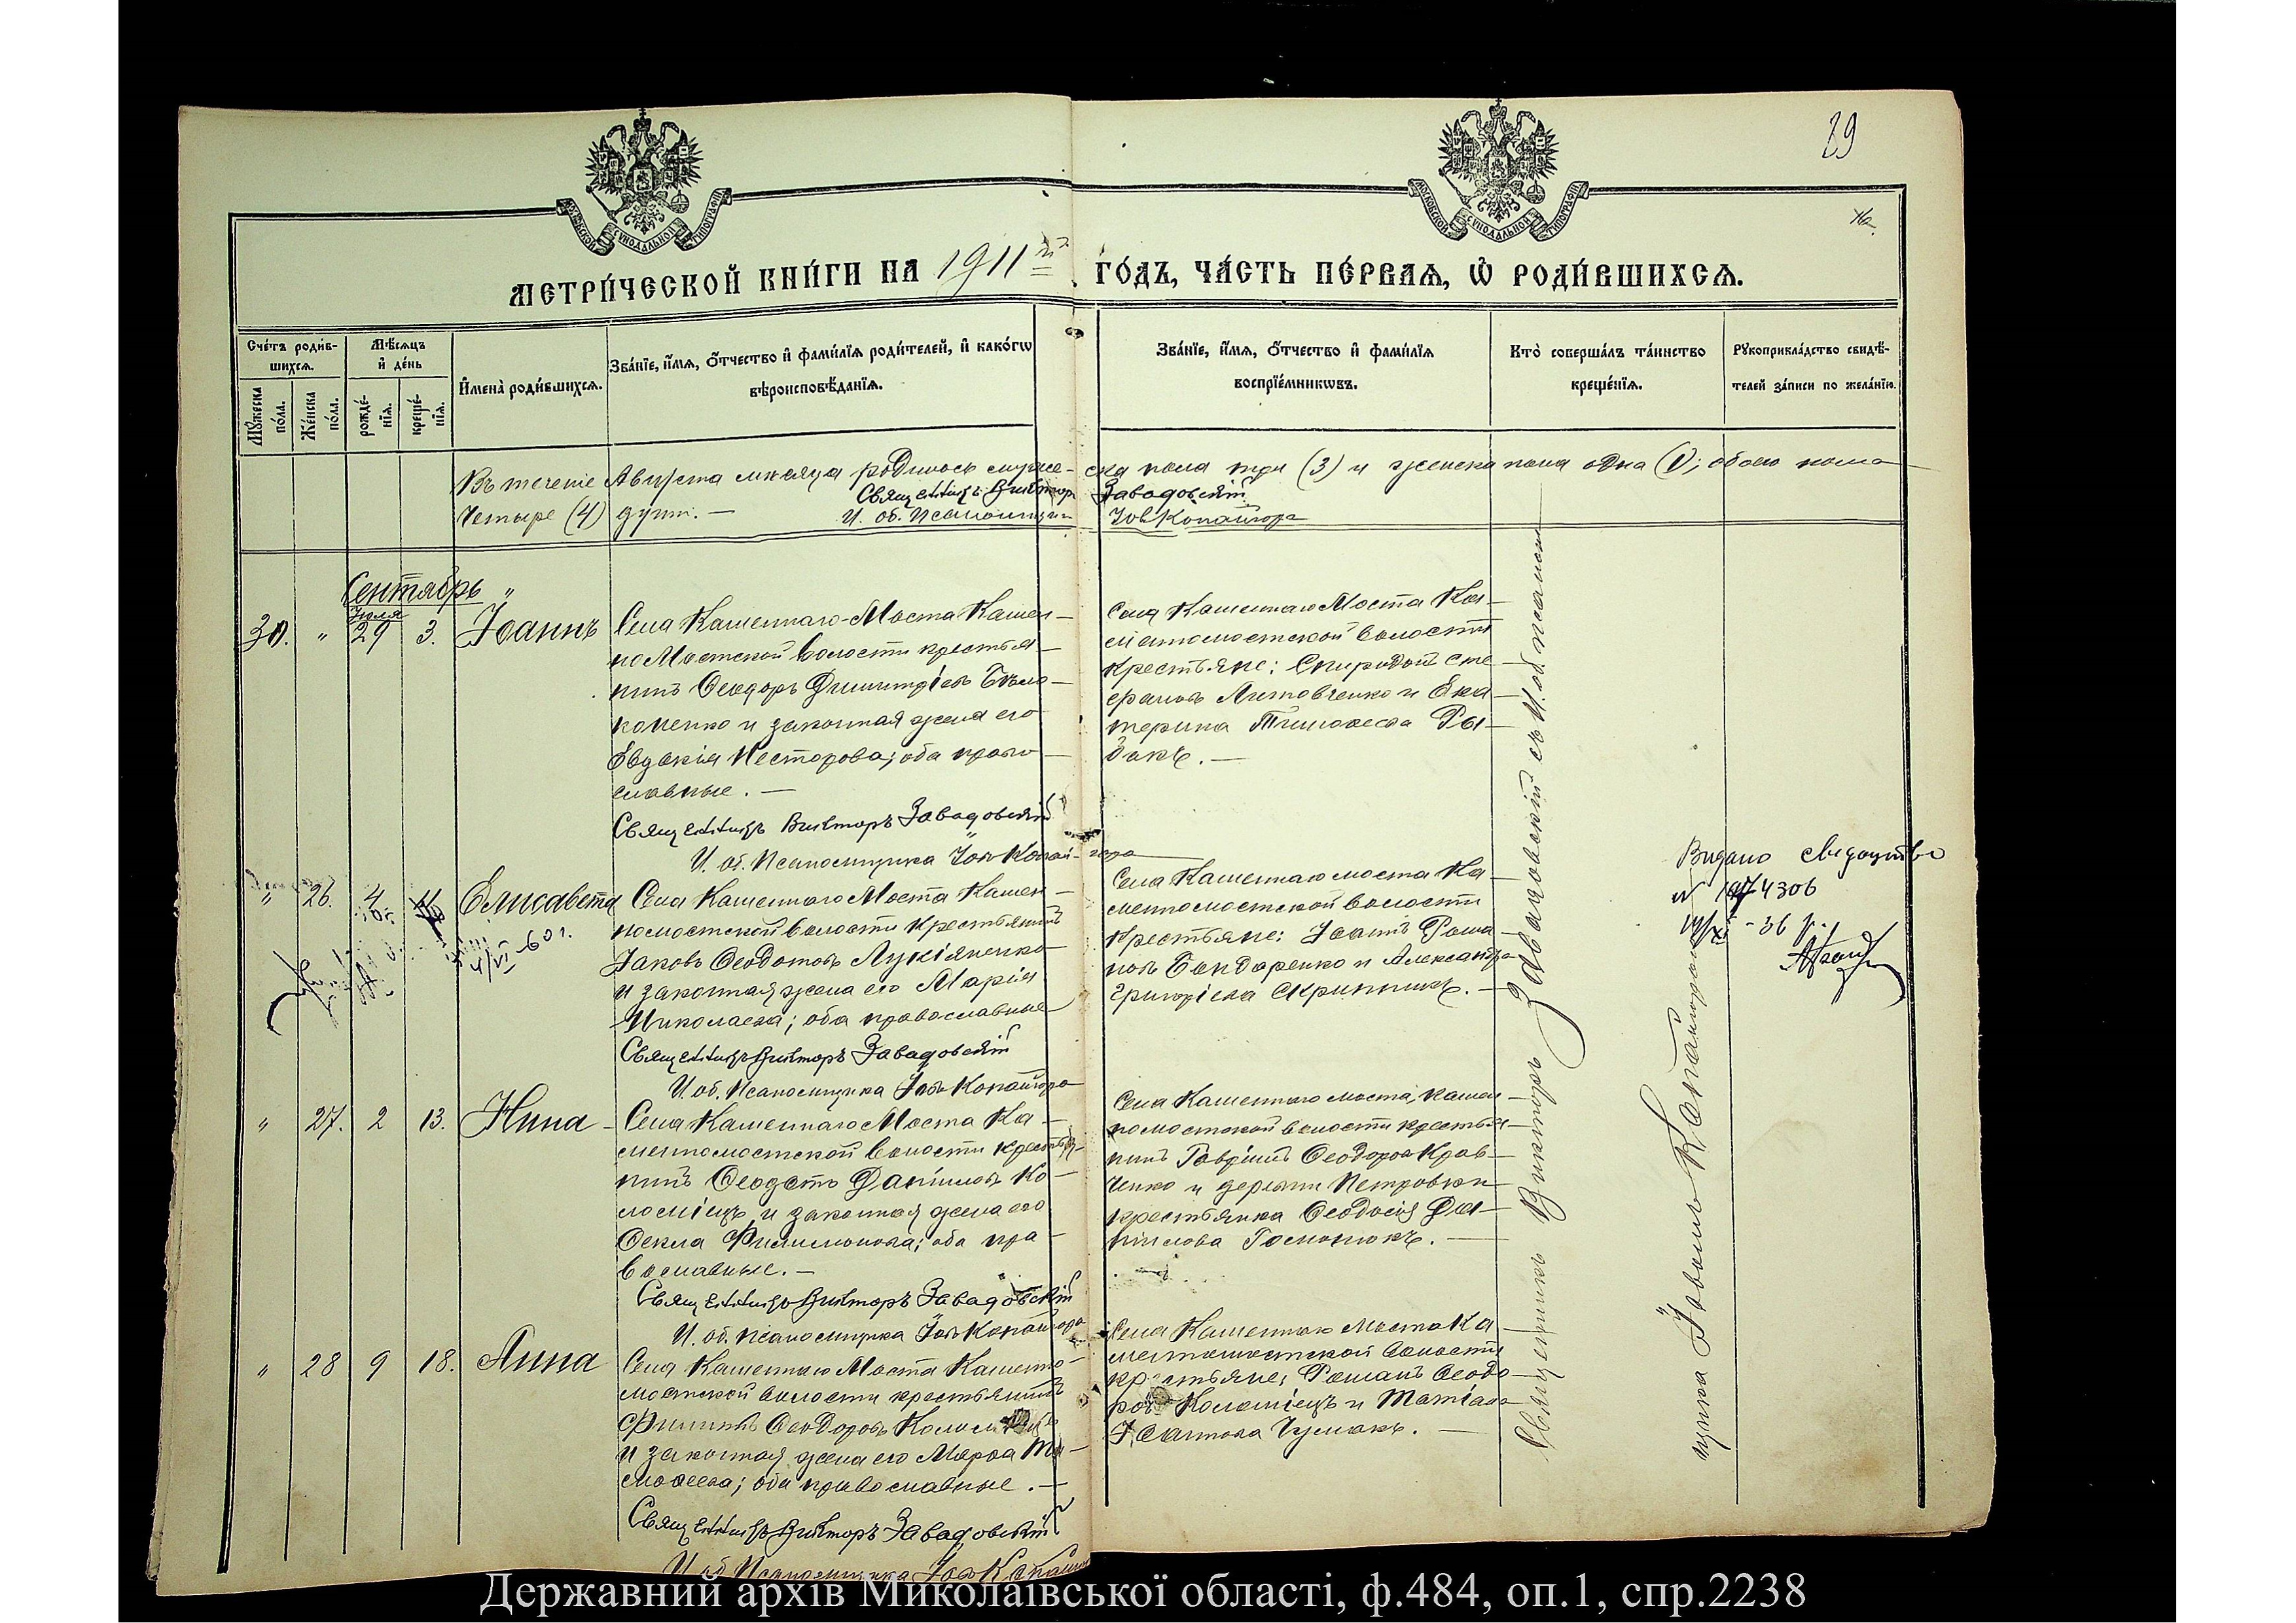 29
МЕТРИ́ЧЕСКОЙ КНИ́ГИ НА 1911й ГО́ДЪ, ЧА́СТЬ ПЕ́РВАѦ, Ѡ҆ РОДИ́ВШИХСѦ.
Сче́тъ роди́вшихсѧ.
Мꙋ́жеска по́ла.
Же́нска по́ла.
Мѣ́сѧцъ и҆ де́нь
рожде́нїѧ.
креще́нїѧ.
И҆мена̀ роди́вшихсѧ.
Зва́нїе, и҆́мѧ, ѻ҆́тчество и҆ фами́лїѧ роди́телей, и҆ како́гѡ
вѣроисповѣ́данїѧ.
Зва́нїе, и҆́мѧ, ѻ҆́тчество и҆ фами́лїѧ
воспрїе́мникѡвъ.
Кто̀ соверша́лъ та́инство
креще́нїѧ.
Рꙋкоприкла́дство свидѣ́-
телей за́писи по жела́нїю.
Въ теченіе Августа мѣсяца родилось муже-ска пола три (3) и женска пола одна (1); обоего пола
Священникъ Викторъ Завадовскій
Четыре (4) душ. — И. об. Псаломщика Іовъ Копайгора
Сентябрь
Іюля
30. " 29 3. Іоаннъ
Села Каменнаго-Моста Камен-
но Мостской волости крестья-
нинъ Ѳеодоръ Димитріевъ Бѣло-
коненко и законная жена его
Евдокія Несторова; оба право-
славные. —
Священникъ Викторъ Завадовскій
И. об. Псаломщика Іовъ Копай-гора
Села Каменнаго Моста Ка-
менномостской волости
Крестьяне: Спиридонъ Сте-
фановъ Литовченко и Ека-
терина Тимоѳеева Ры-
бакъ. —
" 26. 4 Елисавета
Села Каменнаго Моста Камен-
номостской волости Крестьянинъ
Іаковъ Ѳеодотовъ Лукіяненко
и законная жена его Марія
Николаева; оба православные
Священникъ Викторъ Завадовскій
И. об. Псаломщика Іовъ Копайгора
Села Каменнаго моста Ка-
менномостской волости
Крестьяне: Іоаннъ Рома-
новъ Бондаренко и Александра
Григоріева Скрипникъ. —
4/VI-60 г.
Видано свідоцтво
N 4306
-36 р.
" 27. 2 13. Нина
Села Каменнаго Моста Ка-
менномостской волости крестья-
нинъ Ѳеодотъ Даніиловъ Ко-
ломіецъ и законная жена его
Ѳекла Филимонова; оба пра-
вославные. —
Священникъ Викторъ Завадовскій
И. об. псаломщика Іовъ Копайгора
Села Каменнаго моста, Камен-
номостской волости крестья-
нинъ Гавріилъ Ѳеодоровъ Крав-
ченко и деревни Петровки
крестьянка Ѳеодосія Да-
ніилова Гомонюкъ. —
" 28 9 18. Анна
Села Каменнаго Моста Каменно-
мостской волости крестьянинъ
Филиппъ Ѳеодоровъ Коломіецъ
и законная жена его Марѳа Ти-
моѳеева; оба православные. —
Священникъ Викторъ Завадовскій
И. об. Псаломщика Іовъ Копай
Села Каменнаго Моста Ка-
менномостской волости
крестьяне: Романъ Ѳеодо-
ровъ Коломіецъ и
Чумакъ. —
Священникъ Викторъ Завадовскій съ И. об. псалом-
щика Іовомъ Копайгорою
Державний архів Миколаївської області, ф.484, оп.1, спр.2238